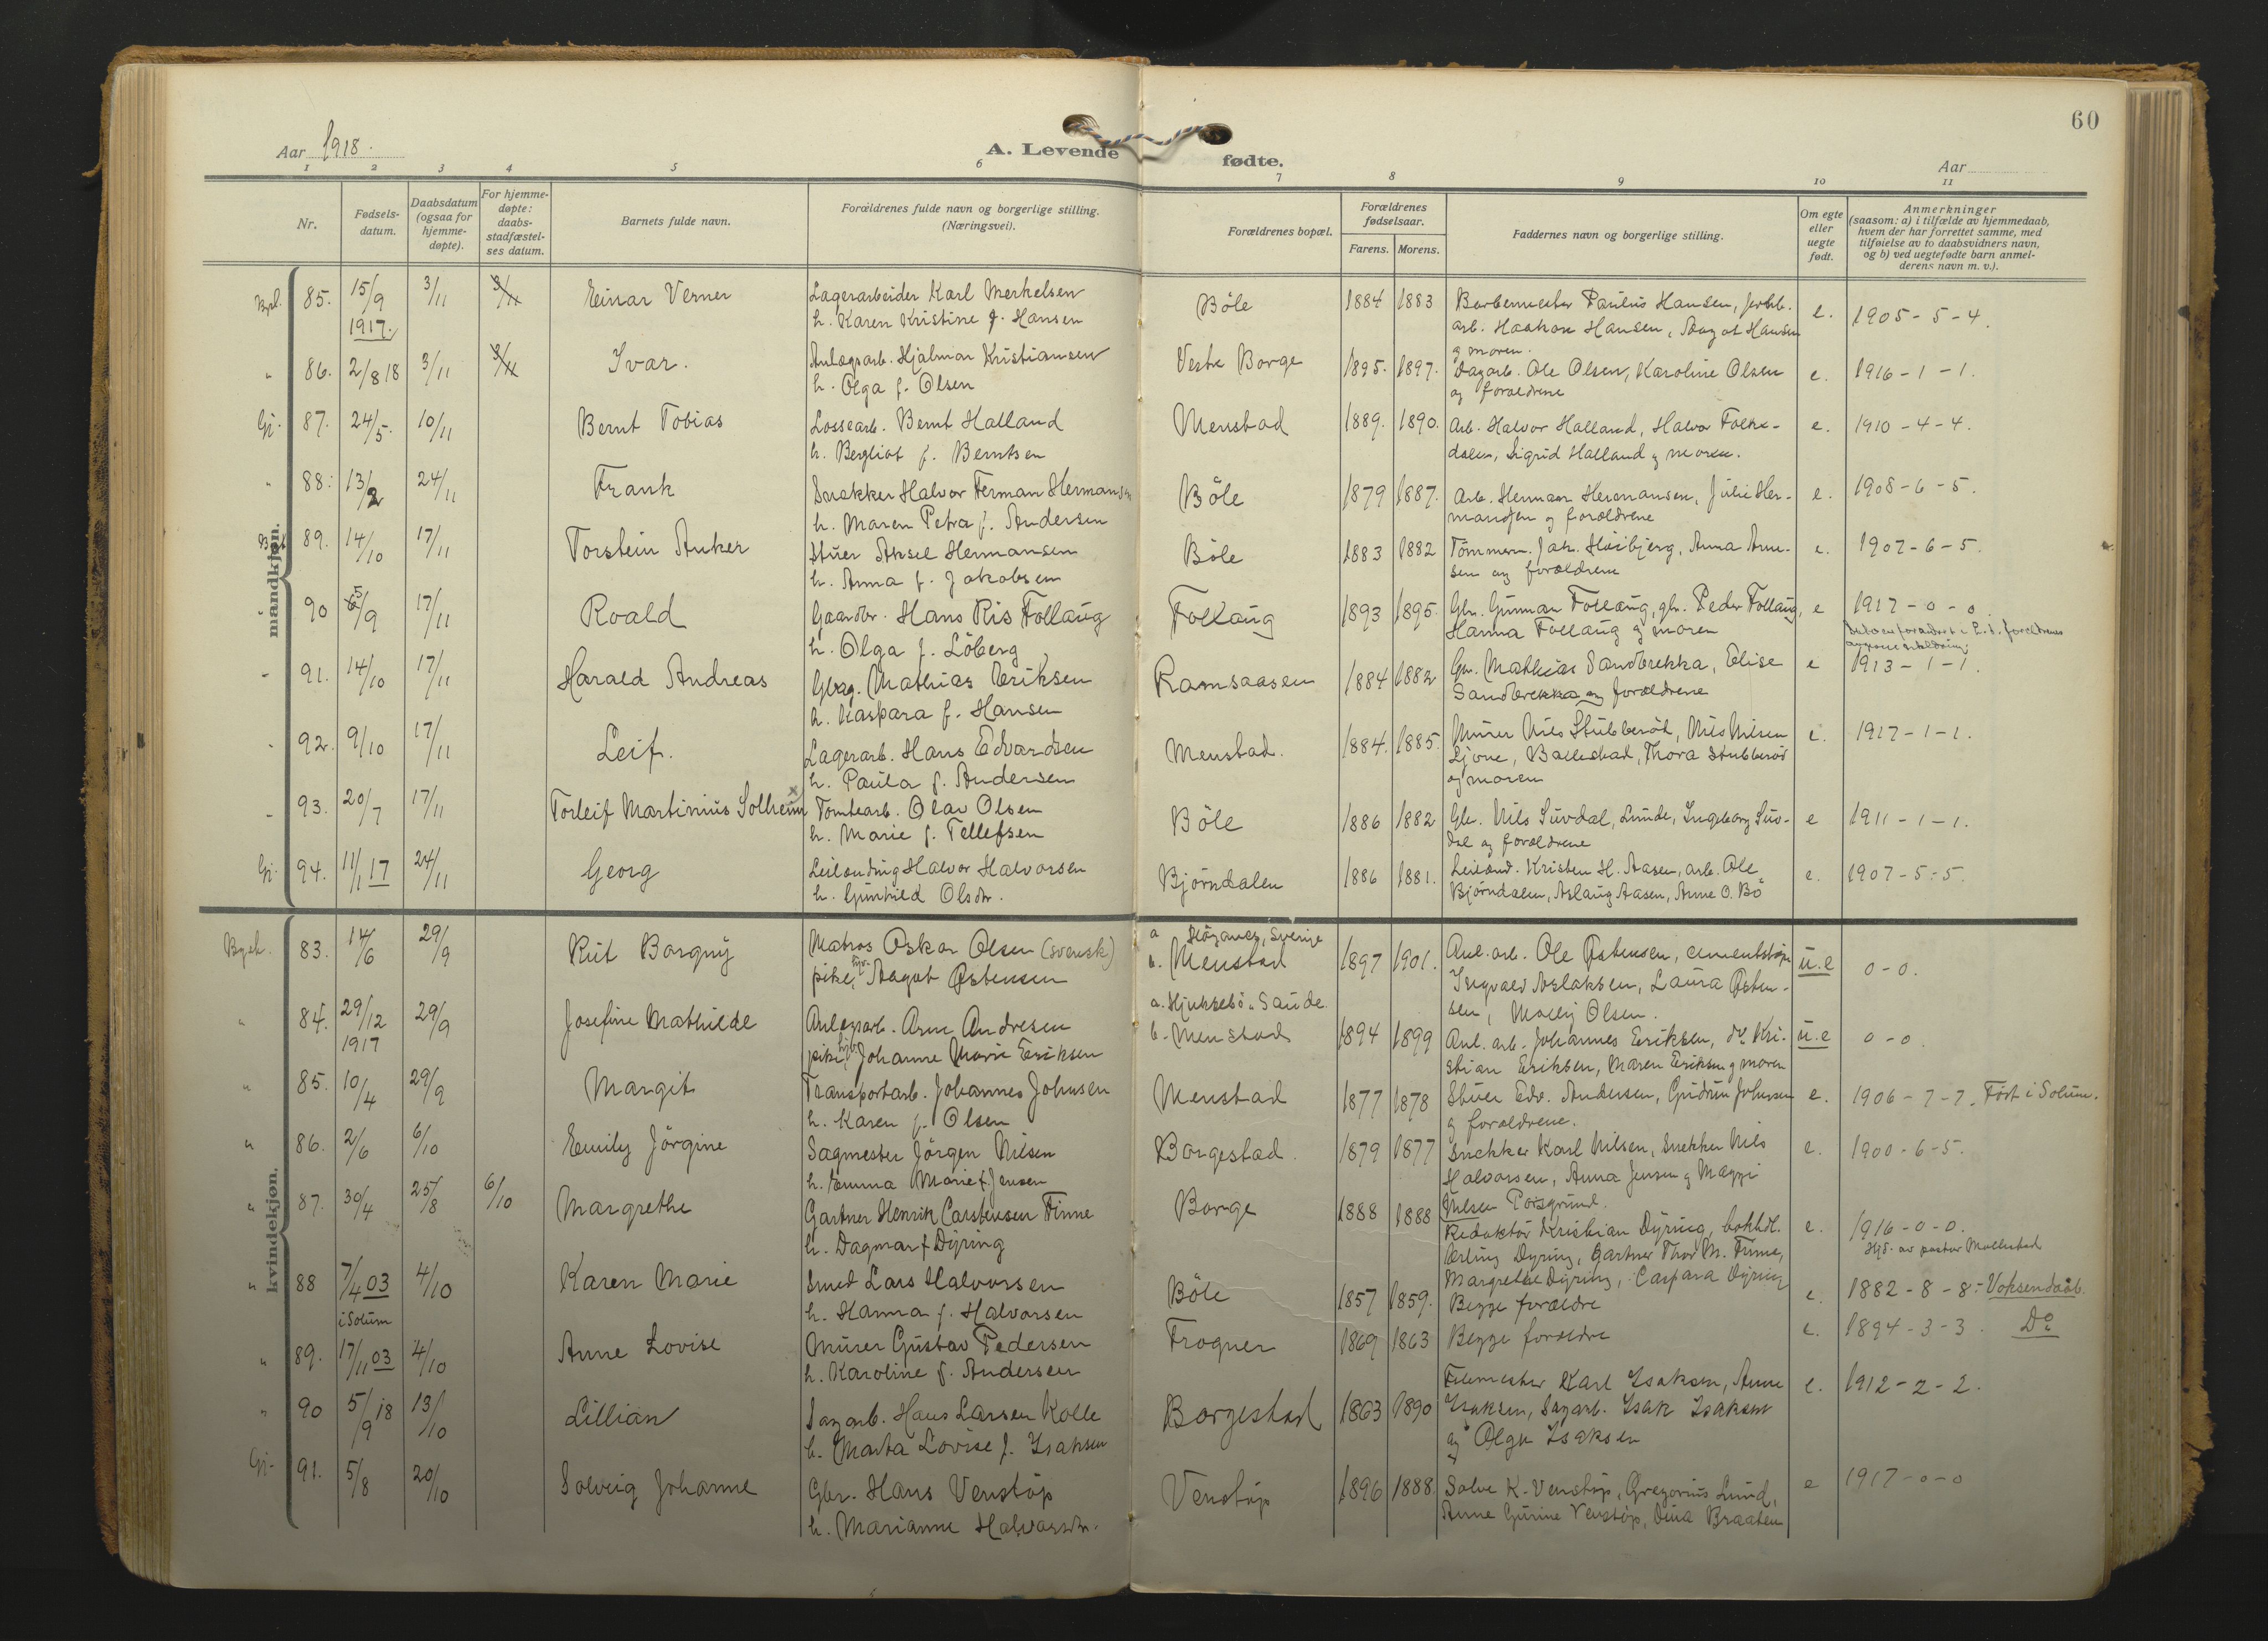 60
Aar 1918.
A. Levende fødte.
Aar
1 2 3 4 5 6 7 8 9 10 11
Nr.
Fødsels-
datum.
Daabsdatum
(ogsaa for
hjemme-
døpte).
For hjemme-
døpte:
daabs-
stadfæstel-
ses datum.
Barnets fulde navn.
Forældrenes fulde navn og borgerlige stilling.
(Næringsvei).
Forældrenes bopæl.
Forældrenes
fødselsaar.
Farens. Morens.
Faddernes navn og borgerlige stilling.
Om egte
eller
uegte
født.
Anmerkninger
(saasom: a) i tilfælde av hjemmedaab,
hvem der har forrettet samme, med
tilføielse av to daabsvidners navn,
og b) ved uegtefødte barn anmel-
derens navn m. v.).
mandkjøn.
85. 15/9 3/11 3/11 Einar Verner Lagerarbeider Karl Merkelsen Böle 1884 1883 Paulus Hansen,
1917. h. Karen Kristine f. Hansen arb. Haakon Hansen, Aagot Hansen e. 1905-5-4.
g moren.
86. 2/8 18 3/11 3/11 Ivar. Anlægsarb. Hjalmar Kristiansen Vestre Borge 1895. 1897. Dagarb. Ole Olsen, Karoline Olsen e. 1916-1-1.
h. Olga f. Olsen og forældrene
Gj. 87. 24/5. 10/11 Bernt Tobias Lossearb. Bernt Halland Menstad 1889. 1890. Arb. Halvor Halland, Halvor Folke- e. 1910-4-4.
h. Bergliot f. Berntsen dalen, Sigrid Halland g moren.
88. 13/2 24/11 Frank Snekker Halvor Ferman Hermansen Böle 1879 1887. Arb. Herman Hermansen, Julie Her- e. 1908-6-5.
h. Maren Petra f. Andersen mansen og forældrene
89. 14/10 17/11 Torstein Anker Stuer Aksel Hermansen Böle 1883 1882 Tömmerm. Jak. Höibjerg, Anna Arne- e. 1907-6-5.
h. Anna f. Jakobsen sen og forældrene
90 5/9 17/11 Roald Gaardbr. Hans Ris Follaug Follaug 1893 1895. Gbr. Gunnar Follaug, gbr. Peder Follaug, e 1917-0-0.
h. Olga f. Löberg Hanna Follaug g moren
91. 14/10 17/11 Harald Andreas Mathias Eriksen Ramsaasen 1884 1882 Gbr. Mathias Sandbrekka, Elise e 1913-1-1.
h. Kaspara f. Hansen Sandbrekka og forældrene
92. 9/10 17/11 Leif. Lagerarb. Hans Edvardsen Menstad. 1884. 1885. Murer Nils Stubberöd, Nils Nilsen e. 1917-1-1.
h. Paula f. Andersen Ballestad, Thora Stubberöd
og moren
93. 20/7 17/11 Torleif Martinius Solheim x Tomtearb. Olav Olsen Böle 1886 1882 Gbr. Nils Suvdal, Lunde, Ingeborg Suv- e 1911-1-1.
h. Marie f. Tellefsen dal og forældrene
Gj. 94. 11/1 17 24/11 Georg Leilænding Halvor Halvorsen Björndalen 1886 1881. Leilænd. Kristen H. Aasen, arb. Ole e. 1907-5-5.
h. Gunhild Olsdtr. Björndalen, Aslaug Aasen, Anne O. Bö
kvindekjøn.
83. 14/6 29/9 Rut Borgny Matros Oskar Olsen (svensk) a Höganes, Sverige 1897 1901. Anl. arb. Ole Østensen, cementstöper u.e 0-0.
pike, Aagot Østensen b. Menstad Ingvald Aslaksen, Laura Østen-
sen, Molly Olsen.
84. 29/12 29/9 Josefine Mathilde Anlegsarb. Arne Andresen a. Hjuksebö, Saude 1894 1899 Anl. arb. Johannes Eriksen, do Kri- u.e 0-0.
1917 pike Johanne Marie Eriksen b. Menstad stian Eriksen, Maren Eriksen g moren
85. 10/4 29/9 Margit Transportarb. Johannes Johnsen Menstad 1877 1878 Stuer Edv. Andersen, Gudrun Johnsen e. 1906-7-7. Födt i Solum.
h. Karen f. Olsen g forældrene.
86. 2/6 6/10 Emily Jörgine Sagmester Jörgen Nilsen Borgestad. 1879 1877 Snekker Karl Nilsen, Snekker Nils e. 1900-6-5.
h. Emma Marie f. Jensen Halvorsen, Anna Jensen g Maggi
Nilsen Porsgrund.
87. 30/4 25/8 6/10 Margrethe Gartner Henrik Carstensen Finne Borge 1888 1888 Redaktör Kristian Dyring, bokhdl. e. 1916-0-0.
h. Dagmar f Dyring Erling Dyring, Gartner Thor M. Finne, Hjd. av pastor Mollestad
Margrethe Dyring, Caspara Dyring
88 7/4 03 4/10 Karen Marie Smed Lars Halvorsen Böle 1857 1859. Begge forældre e. 1882-8-8. Voksendaab.
i Solum h. Hanna f. Halvorsen
89. 17/11 03 4/10 Anne Lovise Murer Gustav Pedersen Frogner 1869 1863 Begge forældre e. 1894-3-3. Do
h. Karoline f. Andersen
90 5/9 18 13/10 Lillian Sagarb. Hans Larsen Kolle Borgestad 1863 1890 Filemester Karl Isaksen, Anne e. 1912-2-2.
h. Marta Lovise f. Isaksen Isaksen, Sagarb. Isak Isaksen
og Olga Isaksen
Gj. 91. 5/8 20/10 Solveig Johanne Gbr. Hans Venstöp Venstöp 1896 1888. Salve K. Venstöp, Gregorius Lund, e 1917-0-0
h. Marianne Halvorsdtr. Anne Gurine Venstöp, Dina Braaten